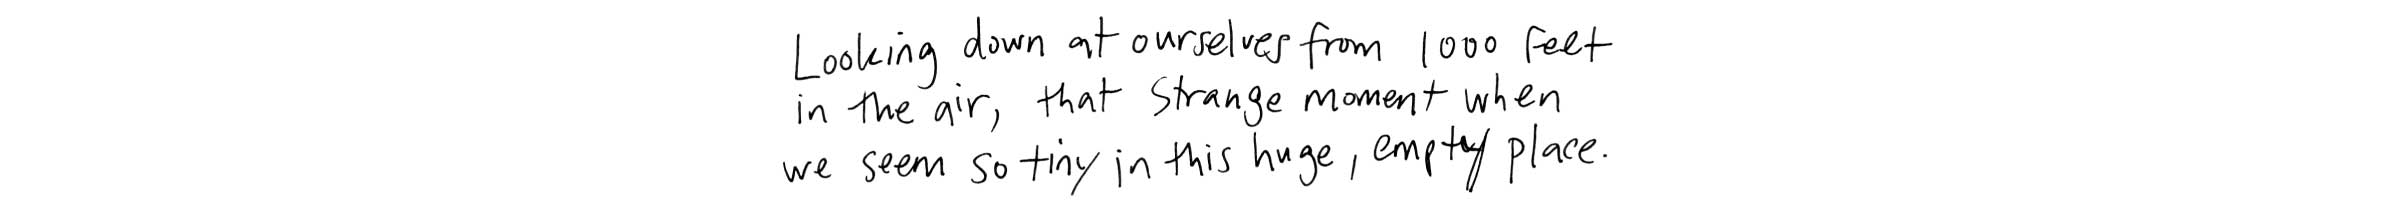 Looking down at ourselves from 1000 feet
in the air, that strange moment when
we seem so tiny in this huge, empty place.